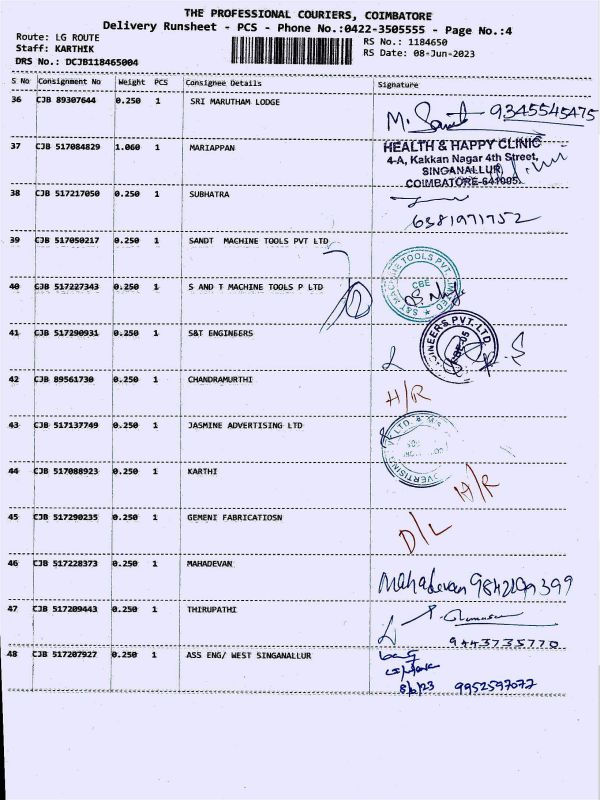 THE PROFESSIONAL COURIERS, COIMBATORE
Delivery Runsheet - PCS - Phone No.:0422-3505555 - Page No.:4
Route: LG ROUTE
Staff: KARTHIK
DRS No.: DCJB118465004
RS No.: 1184650
RS Date: 08-Jun-2023
S No Consignment No Weight PCS Consignee Details Signature
36 CJB 89307644 0.250 1 SRI MARUTHAM LODGE
9345545475
37 CJB 517084829 1.060 1 MARIAPPAN
HEALTH & HAPPY CLINIC
4-A, Kakkan Nagar 4th Street,
SINGANALLUR
COIMBATORE-641005.
38 CJB 517217050 0.250 1 SUBHATRA
6381971752
39 CJB 517050217 0.250 1 SANDT MACHINE TOOLS PVT LTD
40 CJB 517227343 0.250 1 S AND T MACHINE TOOLS P LTD
S&T MACHINE TOOLS PVT. LIMITED
CBE
41 CJB 517290931 0.250 1 S&T ENGINEERS
PVT. LTD.
42 CJB 89561730 0.250 1 CHANDRAMURTHI
H/R
43 CJB 517137749 0.250 1 JASMINE ADVERTISING LTD
44 CJB 517088923 0.250 1 KARTHI
H/R
45 CJB 517290235 0.250 1 GEMENI FABRICATIOSN
D/L
46 CJB 517228373 0.250 1 MAHADEVAN
Mahadevan
47 CJB 517209443 0.250 1 THIRUPATHI
9443735770
48 CJB 517207927 0.250 1 ASS ENG/ WEST SINGANALLUR
8/6/23 9952597077